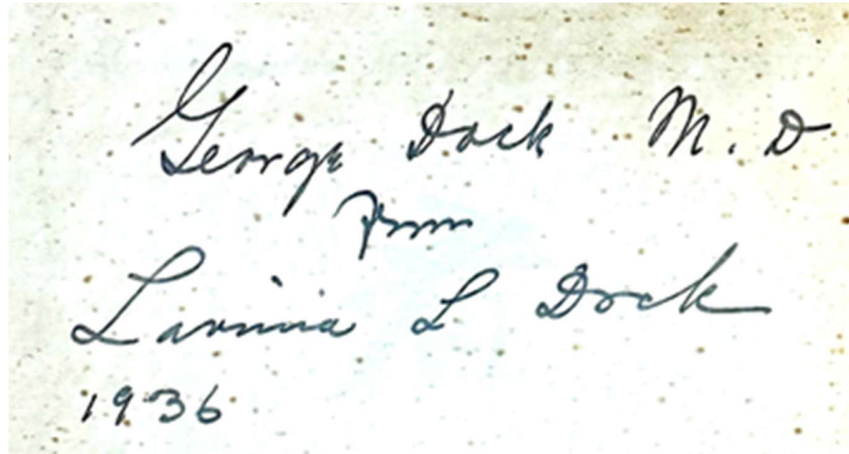 George Dock M. D
From
Lavinia L Dock
1936